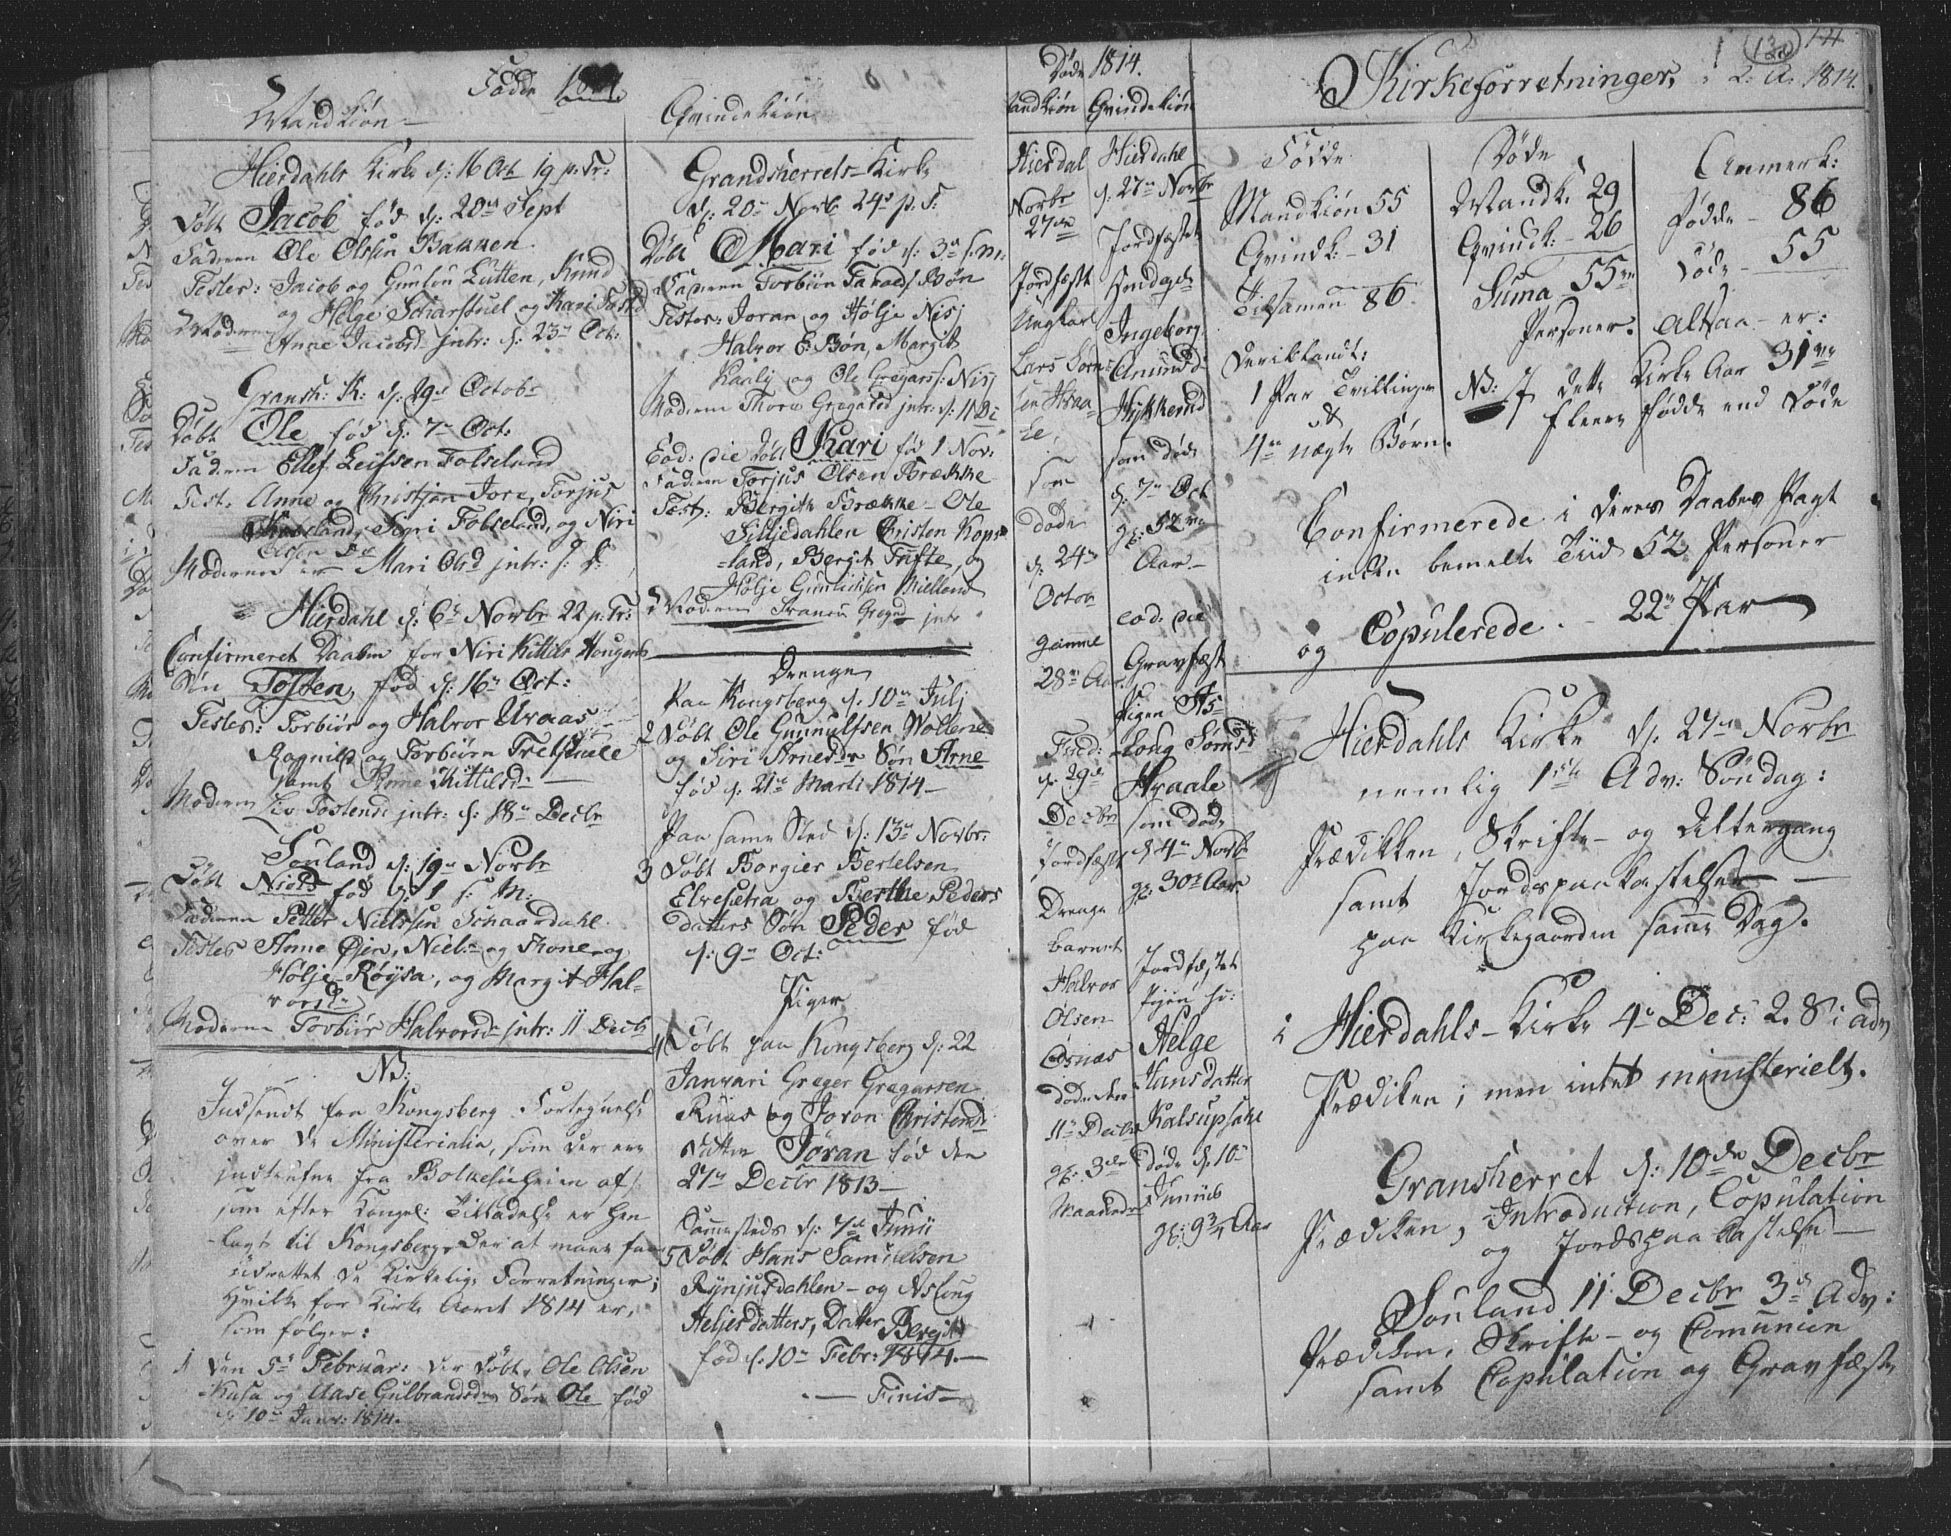 Fødde 1814
Mandkiøn
Hierdahls Kirke d: 16 Oct 19 p. Tr:
Døbt Jacob fød d: 20de Sept
Faderen Ole Olssen Bakken
Testes: Jacob og Gunlou Lutten, Knud
og Helge Scharpmel og Kari
Moderen Anne Jacobsd intr: d: 23de Oct:
Gransh: K: d: 29d Octobr
Døbt Ole fød d: 7de Oct:
Faderen Ellef Leifsen Folseland
Test. Anne og Christjan Jore, Torjus
Sigri Folseland, og Niri
Olsen
Moderen er Mari Olsd intr: s. D:
Hierdahl d: 6te Novbr 22 p. Tr:
Confirmeret Daaben for Niri Kittils Haugens
Søn Tosten, fød d: 16de Oct:
Testes: Torbiør og Halvor Uraas
Ragnild og Torbiørn Tretschuele
samt Anne Kittilsd:
Moderen Liv Tostensd intr: d: 18de Decbr
Souland d: 19de Novbr
Døbt Niels fød d: 1 s. M:
Faderen Petter Nielssen Schaardahl
Testes Anne Øjen, Niels og Thone og
Hølje Røysa, og Margit Hal-
vorsdr
Moderen Torbiør Halvorsdr intr: 11 Decb
NB:
Indsendt fra Kongsberg Fortegnelse
over de Ministerialia, som der ere
indtrufne fra Bolkesieheien af,
som efter Kongel: Tilladelse er hen
lagt til Kongsberg, der at maae faae
udrettet de Kirkelige Forretninger;
hvilke for Kirke Aaret 1814 er,
som følger:
1 Den 5te Februar: der Døbt, Ole Olsen
Kasa og Aase Gulbrandsdrs Søn Ole fød
d: 10de Janr: 1814.
Qvindekiøn
Grandsherrets Kirke
d: 20de Novb 24de p. T:
Døbt Mari fød d: 3de s. M:
Faderen Torbiön Taraldss: Bøn
Testes: Joran og Hølje Nisj
Halvor E: Bøn, Margit
Haalij og Ole Gregarss: Nisj
Moderen Thore Gregarsd intr: d: 11 De
Eod: die Døbt Kari fød 1 Nov:
Faderen Torjus Olsen Brække
Test: Bergith Brække - Ole
Silljedahlen Christen Kops-
-land, Bergit Trifte, og
Hölje Gunlichsen Mielland
Moderen Gregad intr
Drenge
Paa Kongsberg d: 10de Julj
2 Døbt Ole Gunnulfsen Wollene
og Siri Arnesdrs Søn Arne
fød d: 21de Marti 1814
Paa samme Sted d: 13de Novbr:
3 Døbt Borgier Bertelsen
Elvesetra og Berthe Peders
datters Søn Peder fød
d: 9de Oct:
Piger
4 Døbt paa Kongsberg d: 22
Januari Greger Gregarsen
Ruus og Joron Christensd
Datter Joran fød den
27de Decbr 1813
Sammesteds d: 7de Junii
5 Døbt Hans Samuelsen
Rynjusdahlen - og Aslong
Heljesdatters, Datter Bergit
fød d: 10de Febr: 1814.
Finis
Døde 1814.
Mandkiøn
Hierdal
Novbr
27de
Jordfæstt
Ungkar
Lars Sørn-
sen Hraa-
le,
som
døde
d: 24de
Octob
gamml
28de Aar.
d. 29de
Decbr
Jordfæstt
Drenge
barnet
Halvor
Olsen
Øsnæs
døde den
11te Decbr
gl: 3de
Maaneder
Qvindekiøn
Hierdahl
d. 27de Novbr
Jordfæstet
Ingeborg
Amunds
Hykkerud
som døde
d: 7de Oct
gl: 52de
Aar
eod: die
Gravfæst
Pigen As-
-loug Sørnsd
Hraale
som døde
d 4de Novb
gl: 30de Aar
Jordfæstet
Pigen
Helge
Hansdatter
døde d: 10de
Junius
gl: 9 3/4 Aar
Kirkeforretninger, K: A: 1814.
132
Fødde
Mandkiøn 55
Qvindk: 31
Tilsamen 86.
Deriblandt:
1 Par Tvillinger
&
4re uægte Børn.
Døde
Mandk. 29
Qvindk: 26
Suma 55
Personer.
Anmerk:
Fødde - 86
Døde - 55
Altsaa er:
NB: I dette Kirke Aar 31
fleere fødde end Døde
Confirmerede i deres Daabes Pagt
inden bemelte Tiid 52 Personer
og Copulerede - 22 Par
Hierdahls Kirke d. 27de Novbr
nemlig 1ste Adv: Søndag:
Prædikken, Skrifte- og Altergang
samt Jordspaakastelse
paa Kirkegaarden samme Dag.
i Hierdahls Kirke 4de Dec: 2. S i adv
Prædiken; men intet ministerielt.
Gransherret d: 10de Decbr
Prædiken, Introduction, Copulation
og Jordspaakastelse
Souland 11 Decbr 3de Adv:
Prædiken, Skrifte- og Comunion
samt Copulation og Gravfæste